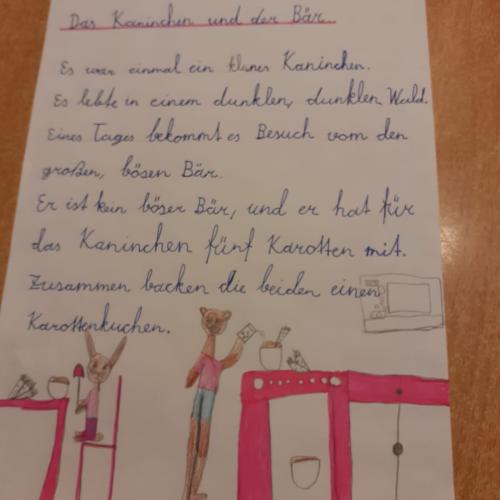 Das Kaninchen und der Bär
Es war einmal ein kleines Kaninchen.
Es lebte in einem dunklen, dunklen Wald.
Eines Tages bekommt es Besuch vom den
großen, bösen Bär.
Er ist kein böser Bär, und er hat für
das Kaninchen fünf Karotten mit.
Zusammen backen die beiden einen
Karottenkuchen.